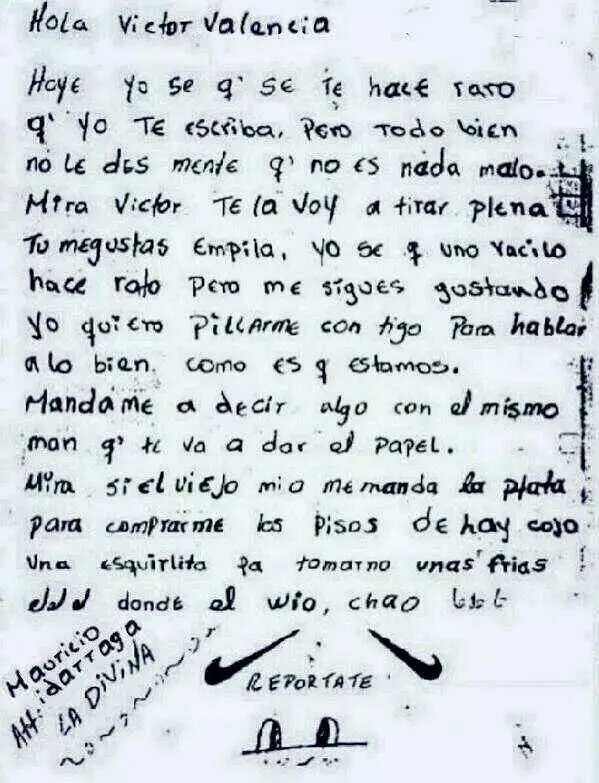 Hola Victor Valencia
Hoye yo se q' se te hace raro
q' yo te escriba, pero todo bien
no le des mente q' no es nada malo.
Mira Victor te la voy a tirar plena
Tu megustas empila, yo se q uno vacilo
hace rato pero me sigues gustando
yo quiero pillarme con tigo para hablar
a lo bien. como es q estamos.
Mandame a decir algo con el mismo
man q' te va a dar el papel.
Mira si el viejo mio me manda la plata
para comprarme los pisos de hay cojo
una esquirlita pa tomarno unas frias
donde el wio, chao
Mauricio
Att: idarraga
LA DIVINA
REPORTATE